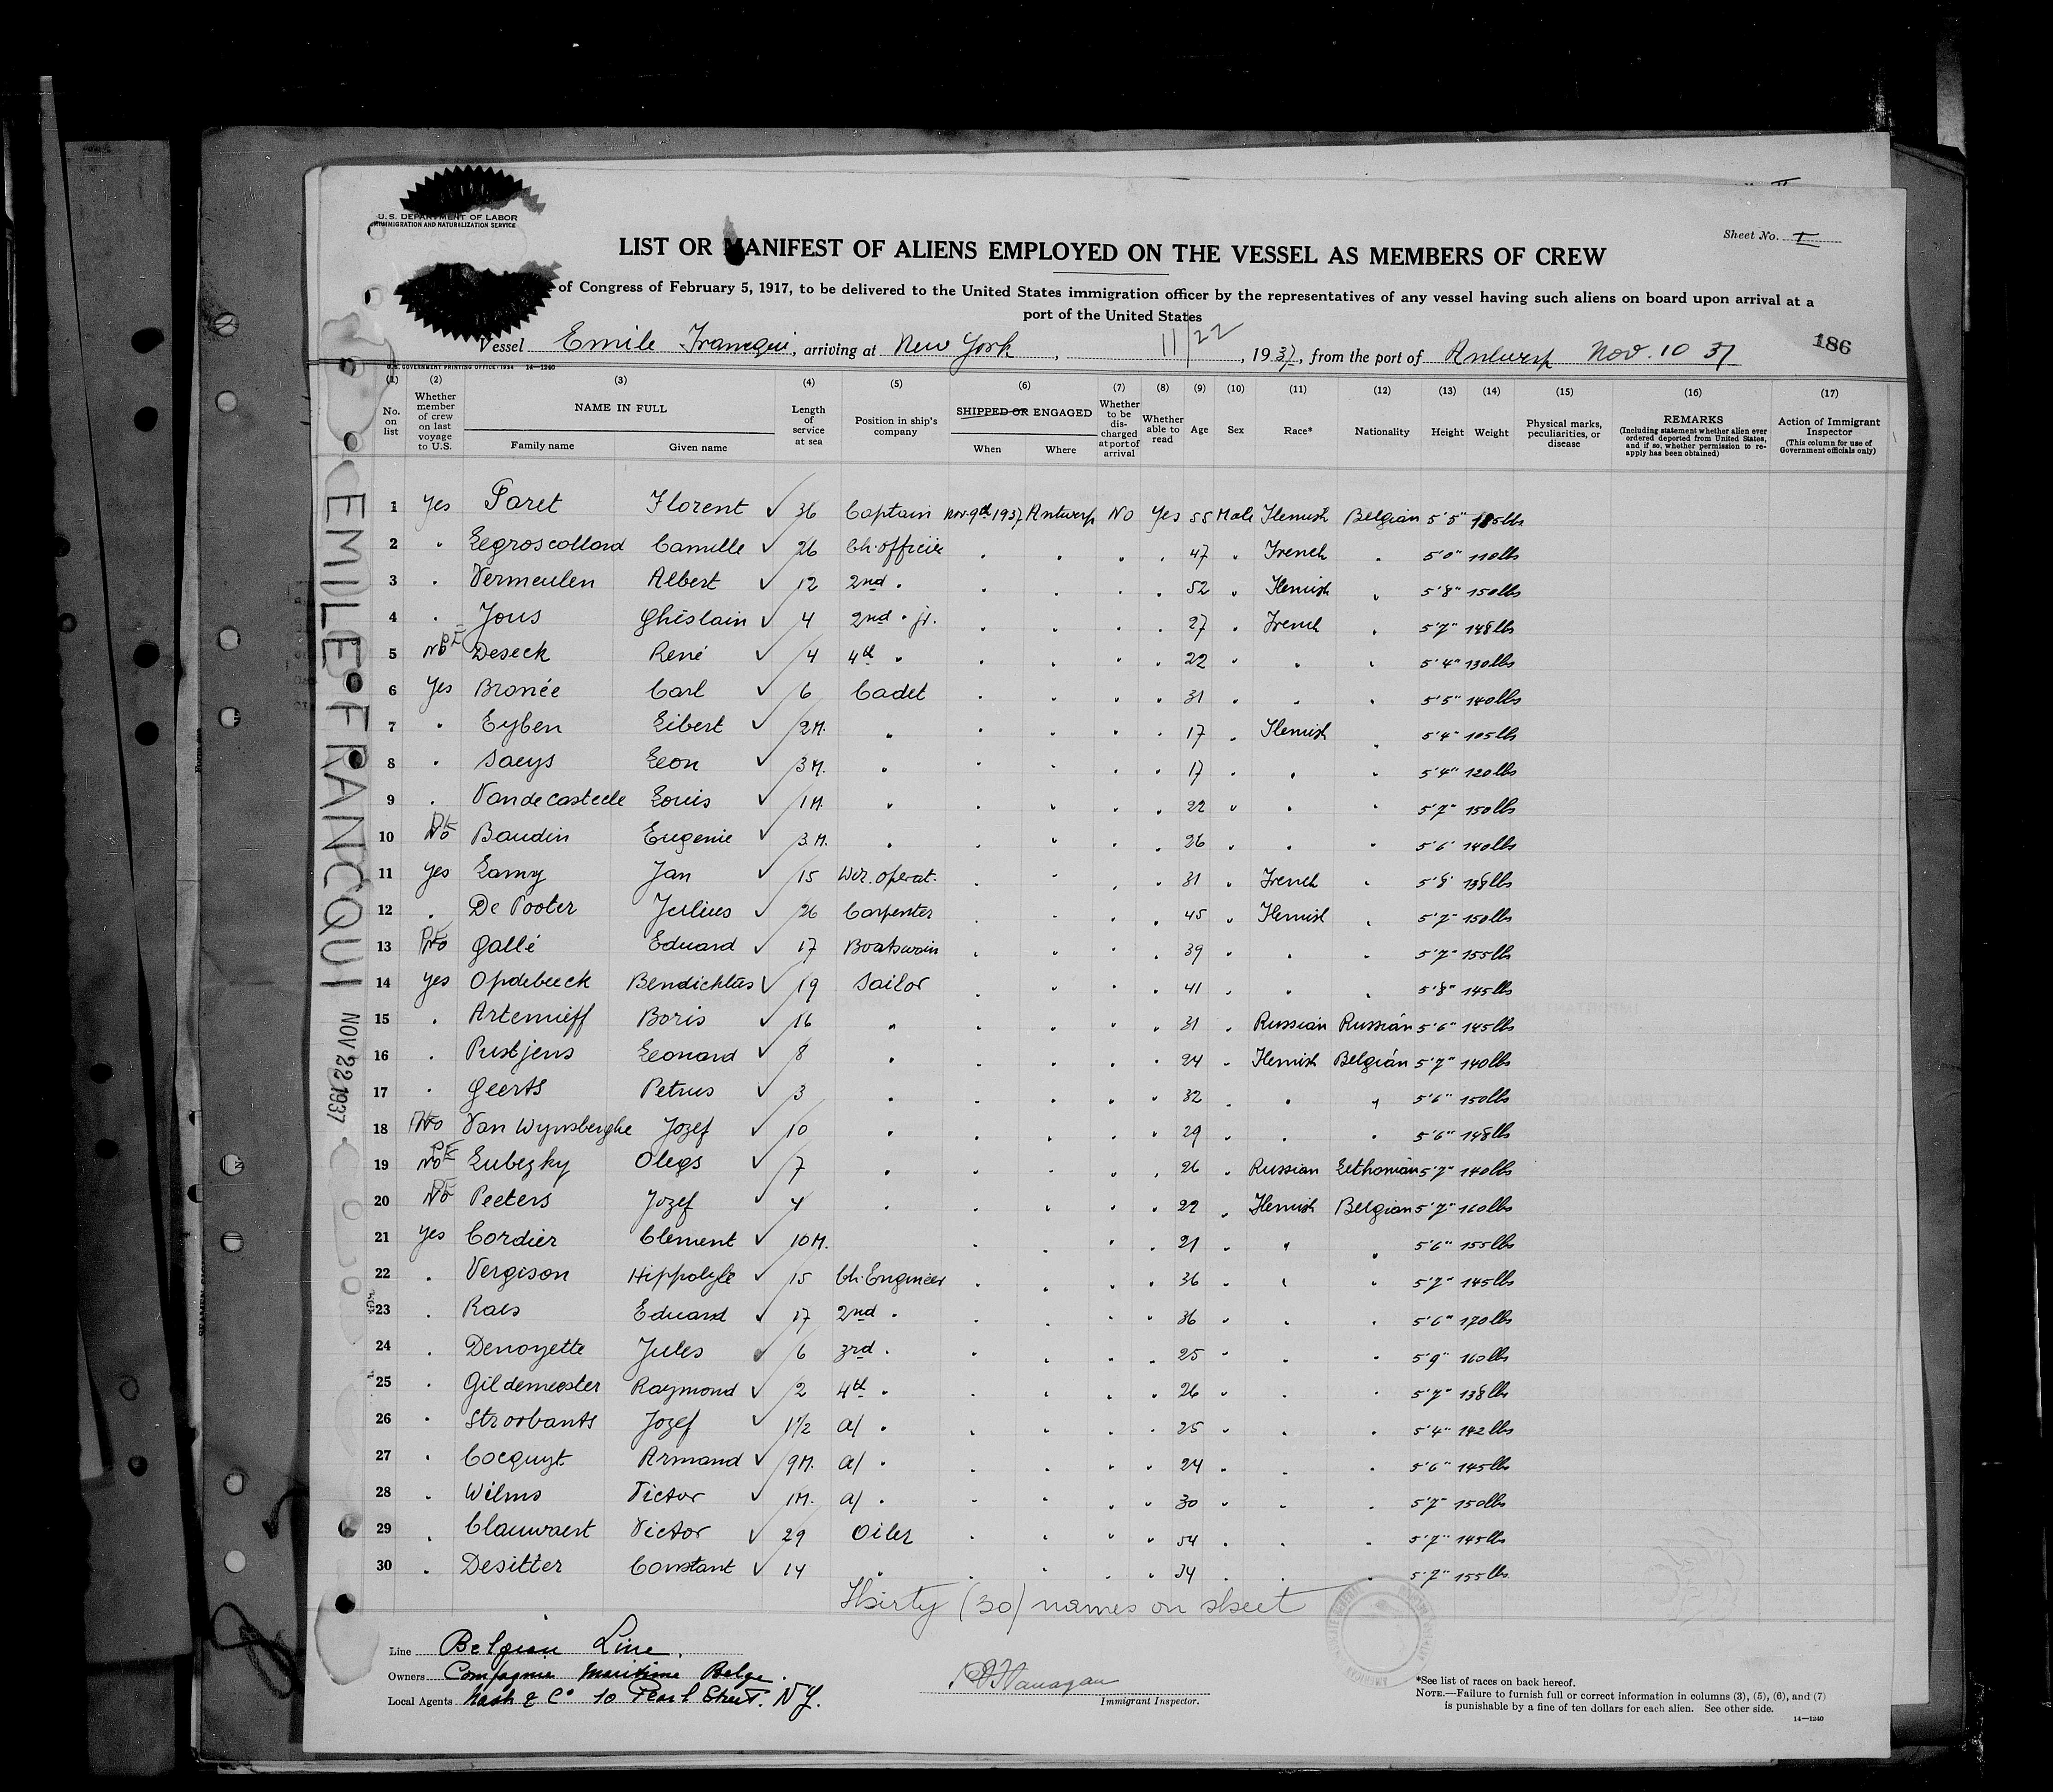 U.S. DEPARTMENT OF LABOR
IMMIGRATION AND NATURALIZATION SERVICE
Sheet No. I
LIST OR MANIFEST OF ALIENS EMPLOYED ON THE VESSEL AS MEMBERS OF CREW
of Congress of February 5, 1917, to be delivered to the United States immigration officer by the representatives of any vessel having such aliens on board upon arrival at a
port of the United States
Vessel Emile Francqui, arriving at New York, 11/22, 1937, from the port of Antwerp Nov. 10 37
186
U.S. GOVERNMENT PRINTING OFFICE: 1934 14—1240
(1) (2) (3) (4) (5) (6) (7) (8) (9) (10) (11) (12) (13) (14) (15) (16) (17)
No. on list
Whether member of crew on last voyage to U.S.
NAME IN FULL
Family name Given name
Length of service at sea
Position in ship's company
SHIPPED OR ENGAGED
When Where
Whether to be discharged at port of arrival
Whether able to read
Age
Sex
Race*
Nationality
Height
Weight
Physical marks, peculiarities, or disease
REMARKS
(Including statement whether alien ever ordered deported from United States, and if so, whether permission to reapply has been obtained)
Action of Immigrant Inspector
(This column for use of Government officials only)
1 Yes Paret Florent ✓ 36 Captain Nov. 9th 1937 Antwerp No Yes 55 Male Flemish Belgian 5'5" 185lbs
2 " Legroscollard Camille ✓ 26 Ch. officier " " " " 47 " French " 5'0" 110lbs
3 " Vermeulen Albert ✓ 12 2nd " " " " " 52 " Flemish " 5'8" 150lbs
4 " Jous Ghislain ✓ 4 2nd " jr. " " " " 27 " French " 5'7" 148lbs
5 No Deseck René ✓ 4 4th " " " " " 22 " " " 5'4" 130lbs
6 Yes Bronée Carl ✓ 6 Cadet " " " " 31 " " " 5'5" 140lbs
7 " Eyben Libert ✓ 2M. " " " " " 17 " Flemish " 5'4" 105lbs
8 " Saeys Leon ✓ 3M. " " " " " 17 " " " 5'4" 120lbs
9 " Vandecasteele Louis ✓ 1M. " " " " " 22 " " " 5'7" 150lbs
10 No Baudin Eugenie ✓ 3M. " " " " " 26 " " " 5'6" 140lbs
11 Yes Lamy Jan ✓ 15 Wir. operat. " " " " 31 " French " 5'8" 138lbs
12 " De Pooter Julius ✓ 26 Carpenter " " " " 45 " Flemish " 5'7" 150lbs
13 No Gallé Eduard ✓ 17 Boatswain " " " " 39 " " " 5'7" 155lbs
14 Yes Opdebeeck Bendichtus ✓ 19 Sailor " " " " 41 " " " 5'8" 145lbs
15 " Artemieff Boris ✓ 16 " " " " " 31 " Russian Russian 5'6" 145lbs
16 " Pustjens Leonard ✓ 8 " " " " " 24 " Flemish Belgian 5'7" 140lbs
17 " Geerts Petrus ✓ 3 " " " " " 32 " " " 5'6" 150lbs
18 No Van Wynsberghe Jozef ✓ 10 " " " " " 29 " " " 5'6" 148lbs
19 No Lubezky Olegs ✓ 7 " " " " " 26 " Russian Lethonian 5'7" 140lbs
20 No Peeters Jozef ✓ 4 " " " " " 22 " Flemish Belgian 5'7" 160lbs
21 Yes Cordier Clement ✓ 10M. " " " " 21 " " " 5'6" 155lbs
22 " Vergison Hippolyte ✓ 15 Ch. Engineer " " " " 36 " " " 5'7" 145lbs
23 " Raes Eduard ✓ 17 2nd " " " " " 36 " " " 5'6" 170lbs
24 " Denoyette Jules ✓ 6 3rd " " " " " 25 " " " 5'9" 160lbs
25 " Gildemeester Raymond ✓ 2 4th " " " " " 26 " " " 5'7" 138lbs
26 " Stroobants Jozef ✓ 1 1/2 a/ " " " " " 25 " " " 5'4" 142lbs
27 " Cocquyt Armand ✓ 9M. a/ " " " " " 24 " " " 5'6" 145lbs
28 " Wilms Victor ✓ 1M. a/ " " " " " 30 " " " 5'7" 150lbs
29 " Clauwaert Victor ✓ 29 Oiler " " " " 54 " " " 5'7" 145lbs
30 " Desitter Constant ✓ 14 " " " " " 34 " " " 5'7" 155lbs
Thirty (30) names on sheet
EMILE FRANCQUI NOV 22 1937
Line Belgian Line.
Owners Compagnie Maritime Belge.
Local Agents Nash & Co 10 Pearl Street. N.Y.
Immigrant Inspector.
*See list of races on back hereof.
NOTE.—Failure to furnish full or correct information in columns (3), (5), (6), and (7)
is punishable by a fine of ten dollars for each alien. See other side.
14—1240